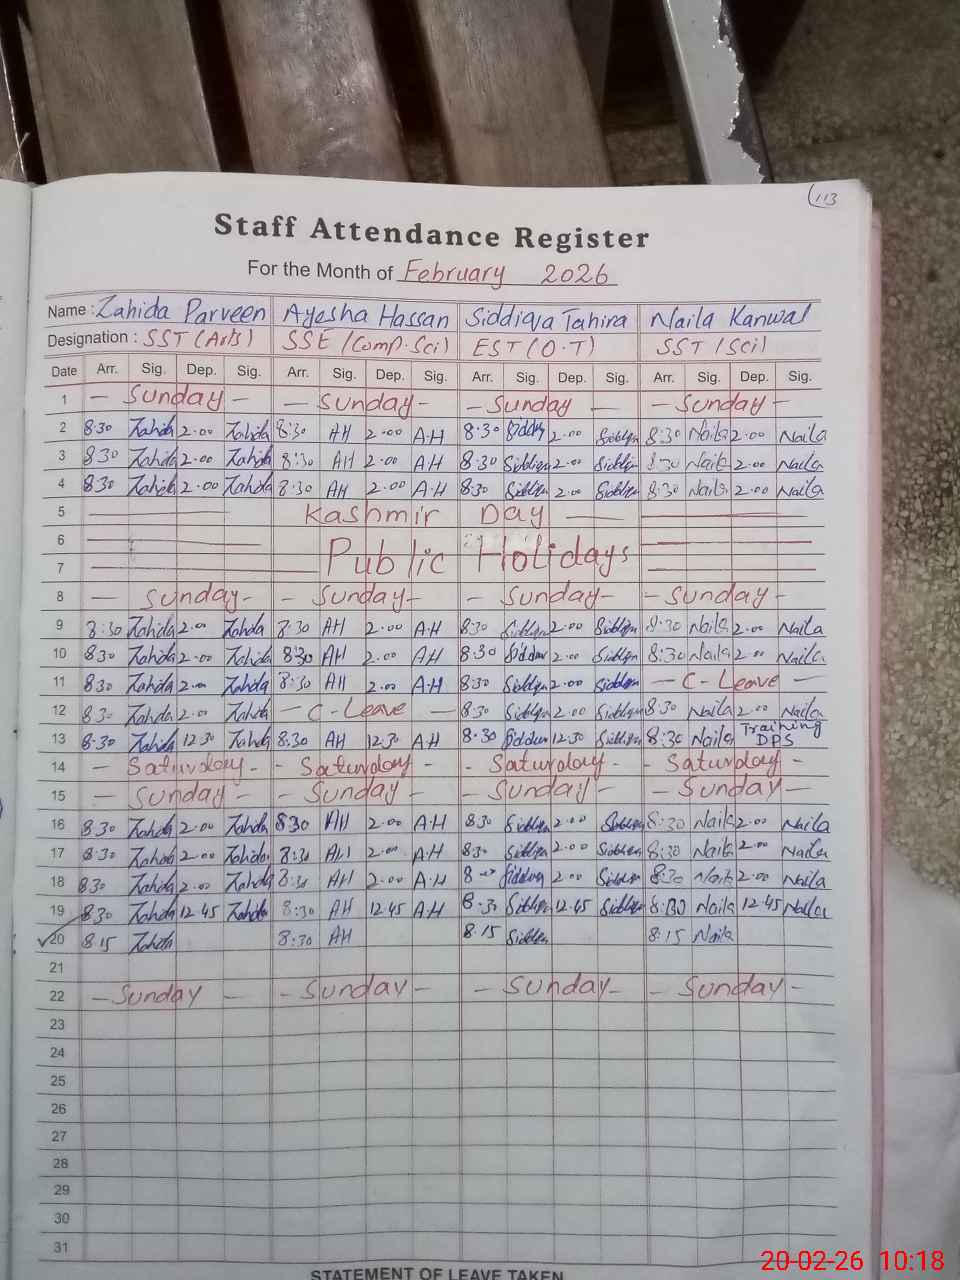 113
Staff Attendance Register
For the Month of February 2026
Name : Zahida Parveen Ayesha Hassan Siddiqa Tahira Naila Kanwal
Designation : SST (Arts) SSE (Comp. Sci) EST (O.T) SST (Sci)
Date Arr. Sig. Dep. Sig. Arr. Sig. Dep. Sig. Arr. Sig. Dep. Sig. Arr. Sig. Dep. Sig.
1 - Sunday - - Sunday - - Sunday - - Sunday -
2 8:30 Zahida 2.00 Zahida 8:30 AH 2.00 A.H 8.30 2.00 8:30 Naila 2.00 Naila
3 8:30 Zahida 2.00 Zahida 8:30 AH 2.00 A.H 8:30 2.00 8:30 Naila 2.00 Naila
4 8:30 Zahida 2.00 Zahida 8:30 AH 2.00 A.H 8:30 2.00 8:30 Naila 2.00 Naila
5 Kashmir Day
6 Public Holidays
7
8 - Sunday - - Sunday - - Sunday - - Sunday -
9 8:30 Zahida 2.00 Zahida 8:30 AH 2.00 A.H 8:30 2.00 8:30 Naila 2.00 Naila
10 8:30 Zahida 2.00 Zahida 8:30 AH 2.00 A.H 8:30 2.00 8:30 Naila 2.00 Naila
11 8:30 Zahida 2.00 Zahida 8:30 AH 2.00 A.H 8:30 2.00 - C-Leave -
12 8:30 Zahida 2.00 Zahida - C-Leave - 8:30 2.00 8:30 Naila 2.00 Naila
13 8:30 Zahida 12:30 Zahida 8:30 AH 12:30 A.H 8:30 12:30 8:30 Naila Training DPS
14 - Saturday - - Saturday - - Saturday - - Saturday -
15 - Sunday - - Sunday - - Sunday - - Sunday -
16 8:30 Zahida 2.00 Zahida 8:30 AH 2.00 A.H 8:30 2.00 8:30 Naila 2.00 Naila
17 8:30 Zahida 2.00 Zahida 8:30 AH 2.00 A.H 8:30 2.00 8:30 Naila 2.00 Naila
18 8:30 Zahida 2.00 Zahida 8:30 AH 2.00 A.H 2.00 8:30 Naila 2.00 Naila
19 8:30 Zahida 12.45 Zahida 8:30 AH 12.45 A.H 8:30 12.45 8:30 Naila 12.45 Naila
20 8.15 Zahida 8:30 AH 8.15 8:15 Naila
21
22 - Sunday - - Sunday - - Sunday - - Sunday -
23
24
25
26
27
28
29
30
31
STATEMENT OF LEAVE TAKEN
20-02-26 10:18